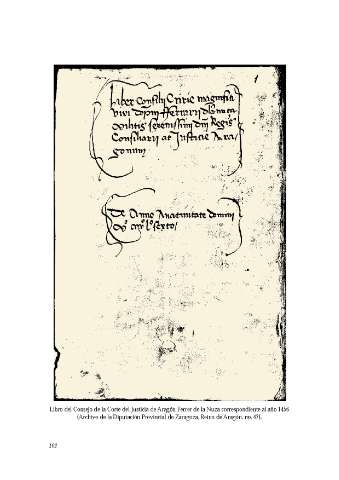 1
Liber Consilii Curie magnifici
viri domini Ferrarii de la nuca
militis serenissimi dni Regis
Consiliarii ac Justicie Ara
gonum
De Anno Anatiuitate domini
Mº cccc lº sexto
Libro del Consejo de la Corte del Justicia de Aragón Ferrer de la Nuza correspondiente al año 1456
(Archivo de la Diputación Provincial de Zaragoza, Reino de Aragón, ms. 47).
102